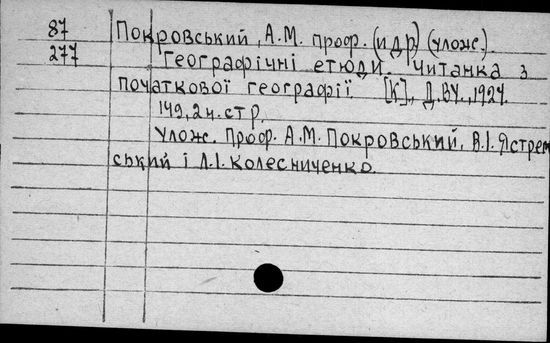 87 Покровський, А.М. проф. (и др) (улож.).
277 Географічні етюди. Читанка з
початкової географії. [К]., Д.ВУ., 1924.
149, 2 н. стр.
Улож. проф. А.М. Покровський, В.І. Ястрем
ський і Л.І. Колесниченко.